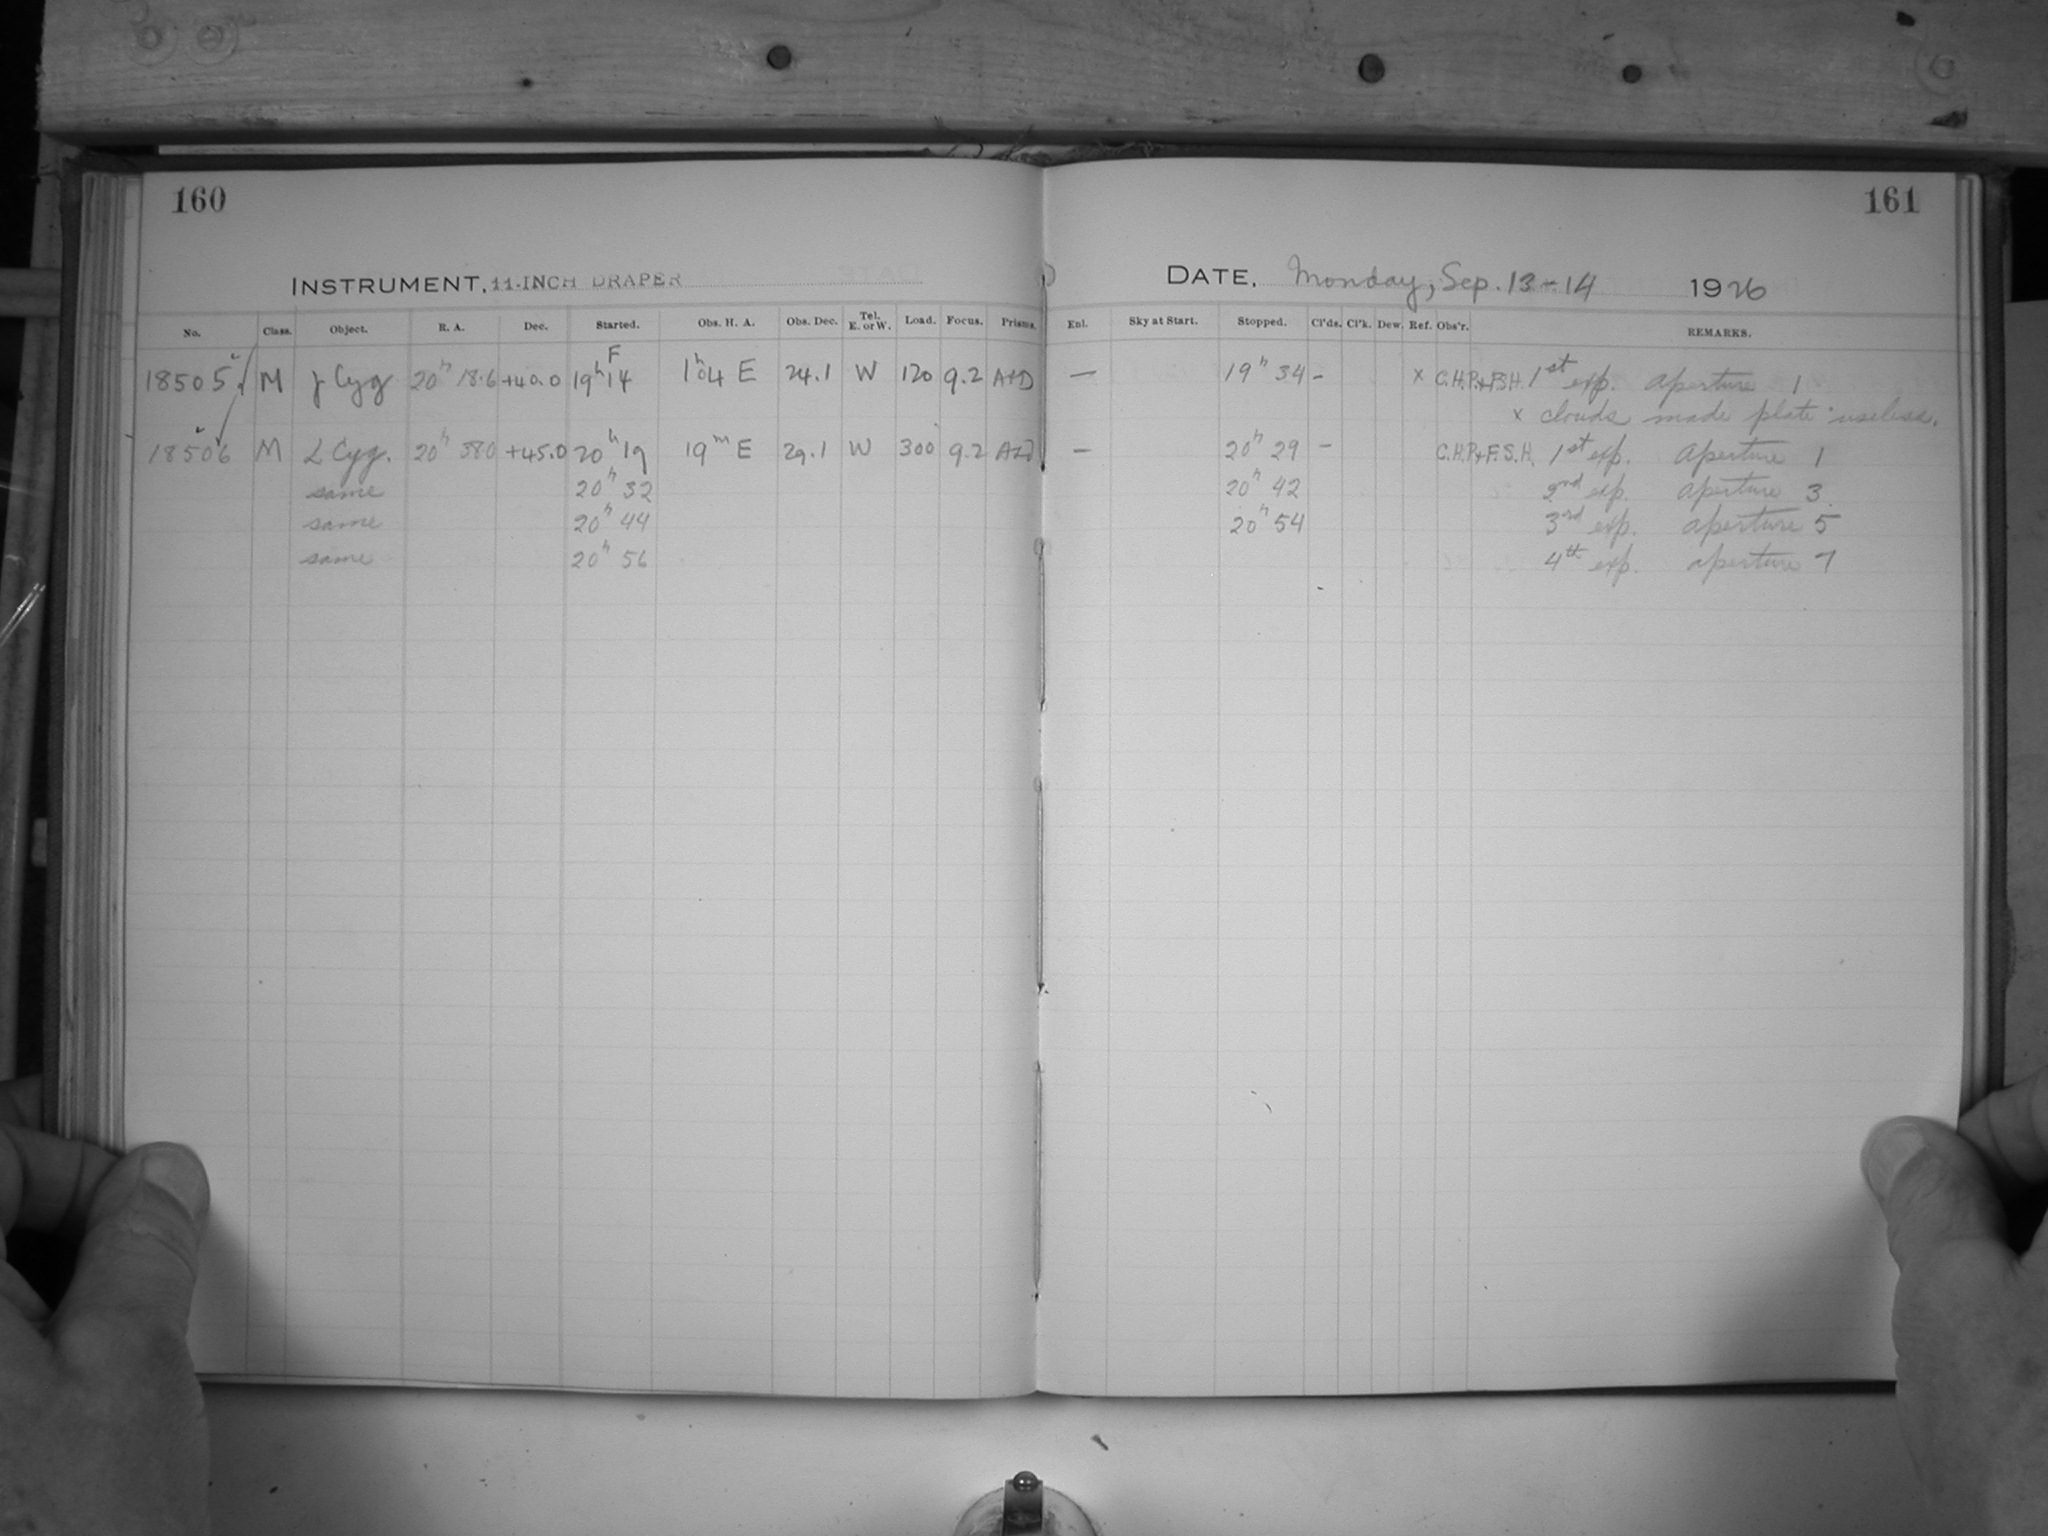 160
161
INSTRUMENT, 11-INCH DRAPER
DATE, Monday, Sep. 13-14 1926
No. Class. Object. R. A. Dec. Started. Obs. H. A. Obs. Dec. Tel. E. or W. Load. Focus. Prisms. Enl. Sky at Start. Stopped. Cl'ds. Cl'k. Dew. Ref. Obs'r. REMARKS.
F
18505 M γ Cyg 20h 18.6 +40.0 19h 14 1h 04 E 24.1 W 120 9.2 A+D — 19h 34 - x C.H.P.+F.S.H. 1st exp. Aperture 1
x clouds made plate useless.
18506 M α Cyg. 20h 38.0 +45.0 20h 19 19m E 29.1 W 300 9.2 A+D — 20h 29 - C.H.P.+F.S.H. 1st exp. Aperture 1
same 20h 32 20h 42 2nd exp. aperture 3
same 20h 44 20h 54 3rd exp. aperture 5
same 20h 56 4th exp. aperture 7